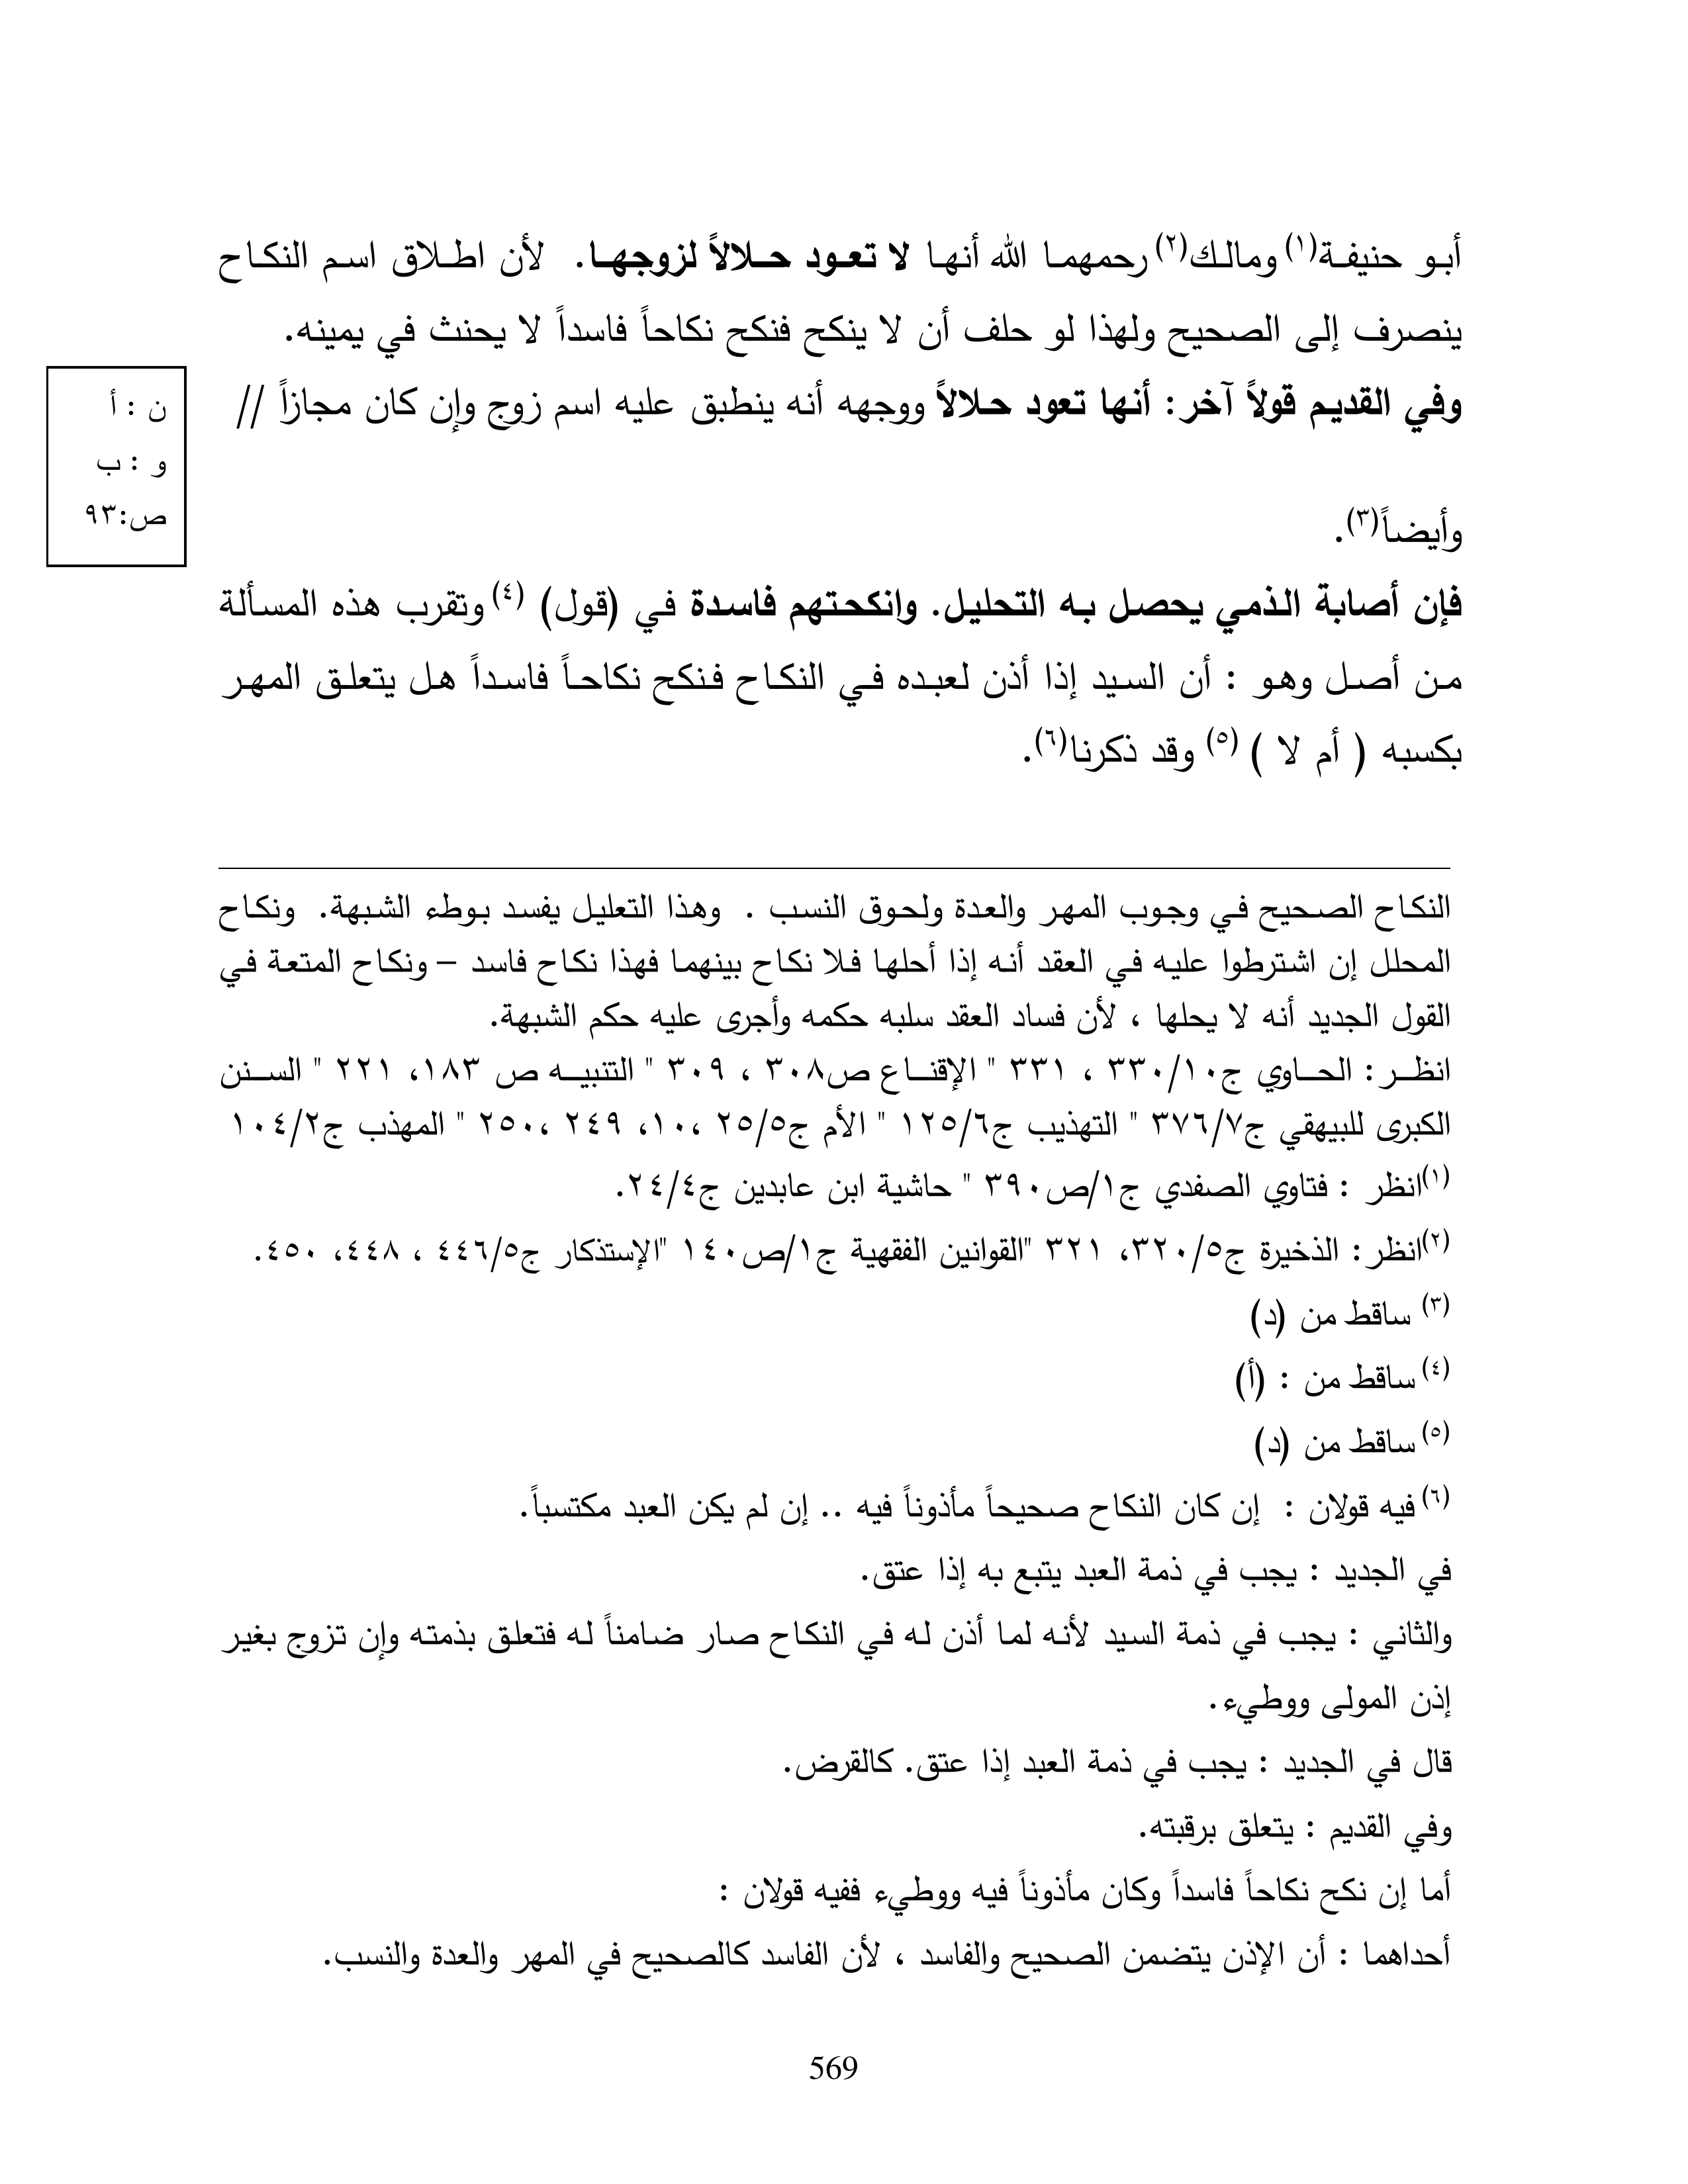 أبو حنيفة(١) ومالك(٢) رحمهما الله أنها لا تعود حلالاً لزوجها. لأن اطلاق اسم النكاح
ينصرف إلى الصحيح ولهذا لو حلف أن لا ينكح فنكح نكاحاً فاسداً لا يحنث في يمينه.
وفي القديم قولاً آخر: أنها تعود حلالاً ووجهه أنه ينطبق عليه اسم زوج وإن كان مجازاً //
ن : أ
و : ب
ص:٩٣
وأيضاً(٣).
فإن أصابة الذمي يحصل به التحليل. وانكحتهم فاسدة في (قول) (٤) وتقرب هذه المسألة
من أصل وهو : أن السيد إذا أذن لعبده في النكاح فنكح نكاحاً فاسداً هل يتعلق المهر
بكسبه ( أم لا ) (٥) وقد ذكرنا(٦).
النكاح الصحيح في وجوب المهر والعدة ولحوق النسب . وهذا التعليل يفسد بوطء الشبهة. ونكاح
المحلل إن اشترطوا عليه في العقد أنه إذا أحلها فلا نكاح بينهما فهذا نكاح فاسد – ونكاح المتعة في
القول الجديد أنه لا يحلها ، لأن فساد العقد سلبه حكمه وأجرى عليه حكم الشبهة.
انظر : الحاوي ج١٠/٣٣٠ ، ٣٣١ " الإقناع ص٣٠٨ ، ٣٠٩ " التنبيه ص ١٨٣، ٢٢١ " السنن
الكبرى للبيهقي ج٧/٣٧٦ " التهذيب ج٦/١٢٥ " الأم ج٥/٢٥ ،١٠، ٢٤٩ ،٢٥٠ " المهذب ج٢/١٠٤
(١)انظر : فتاوي الصفدي ج١/ص٣٩٠ " حاشية ابن عابدين ج٤/٢٤.
(٢)انظر : الذخيرة ج٥/٣٢٠، ٣٢١ "القوانين الفقهية ج١/ص١٤٠ "الإستذكار ج٥/٤٤٦ ، ٤٤٨، ٤٥٠.
(٣) ساقط من (د)
(٤) ساقط من : (أ)
(٥) ساقط من (د)
(٦) فيه قولان : إن كان النكاح صحيحاً مأذوناً فيه .. إن لم يكن العبد مكتسباً.
في الجديد : يجب في ذمة العبد يتبع به إذا عتق.
والثاني : يجب في ذمة السيد لأنه لما أذن له في النكاح صار ضامناً له فتعلق بذمته وإن تزوج بغير
إذن المولى ووطيء.
قال في الجديد : يجب في ذمة العبد إذا عتق. كالقرض.
وفي القديم : يتعلق برقبته.
أما إن نكح نكاحاً فاسداً وكان مأذوناً فيه ووطيء ففيه قولان :
أحداهما : أن الإذن يتضمن الصحيح والفاسد ، لأن الفاسد كالصحيح في المهر والعدة والنسب.
569